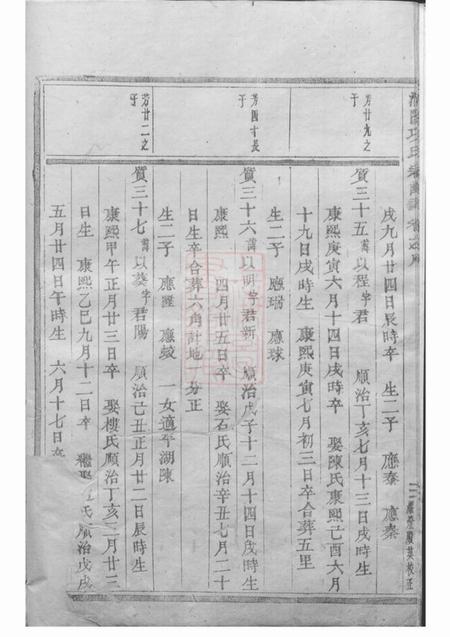 戌九月廿四日辰時卒　生二子　應泰　應秦
芳廿九之子
質三十五諱以程字君　順治丁亥七月十三日戌時生
康熙庚寅六月十四日戌時卒　娶陳氏康熙己酉六月
十九日戌時生　康熙庚寅七月初三日卒合葬五里
生二子　應瑞　應球
芳四十長子
質三十六諱以明字君新　順治戊子十二月十四日戌時生
康熙　四月廿五日卒　娶石氏順治辛丑七月二十
日生卒合葬六角計地　分正
生二子　應　應　一女適平湖陳
芳廿二之子
質三十七諱以葵字君陽　順治己丑正月廿二日辰時生
康熙甲午正月廿三日卒　娶樓氏順治丁亥二月廿三
日生　康熙乙巳九月十二日卒　繼娶　氏順治戊戌
五月廿四日午時生　六月十七日卒